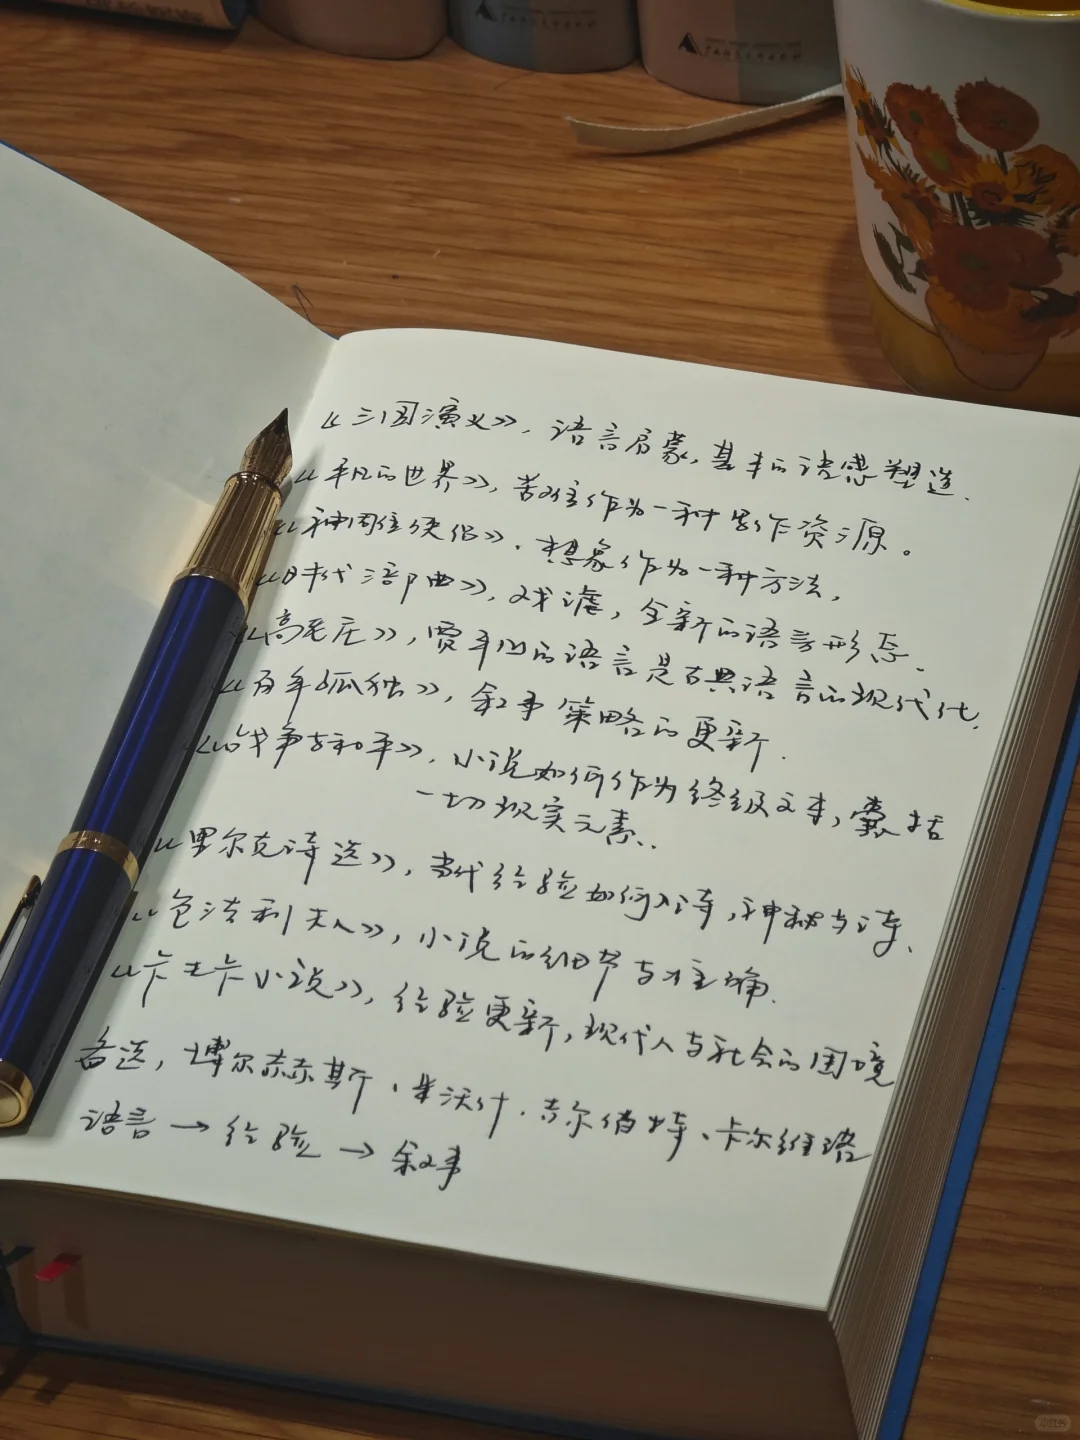 广西师范大学出版社
《三国演义》，语言启蒙，基本的语感塑造.
《平凡的世界》，苦难作为一种写作资源。
《神雕侠侣》，想象作为一种方法，
《时代三部曲》，戏谑，全新的语言形态.
《高老庄》，贾平凹的语言是古典语言的现代化.
《百年孤独》，叙事策略的更新.
《战争与和平》，小说如何作为终级文本，囊括
一切现实元素..
《里尔克诗选》，当代经验如何入诗，神秘与诗、
《包法利夫人》，小说的细节与准确.
《卡夫卡小说》，经验更新，现代人与社会的困境
备选，博尔赫斯、米沃什、吉尔伯特、卡尔维诺
语言→经验→叙事
小红书